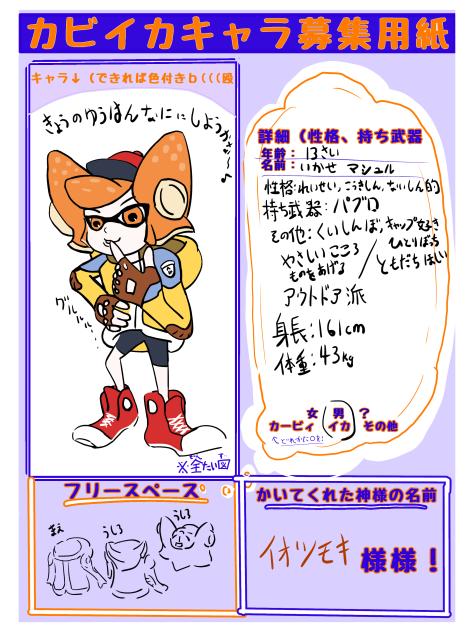 カビイカキャラ募集用紙
キャラ↓（できれば色付きb(((殴
きょうのゆうはんなににしようかなぁ〜♪
グルルル…
※全たい図
詳細（性格、持ち武器
年齢：13さい
名前：いかせ マシュル
性格：れいせい、こうきしん、ないしん的
持ち武器：パブロ
その他：くいしんぼ、キャップ好き
やさしいこころ／ひとりぼっち
ものをあげる／ともだちほしい
アウトドア派
身長：161cm
体重：43kg
女 男 ？
カービィ イカ その他
フリースペース
まえ
うしろ
うしろ
かいてくれた神様の名前
イオツモキ 様様！